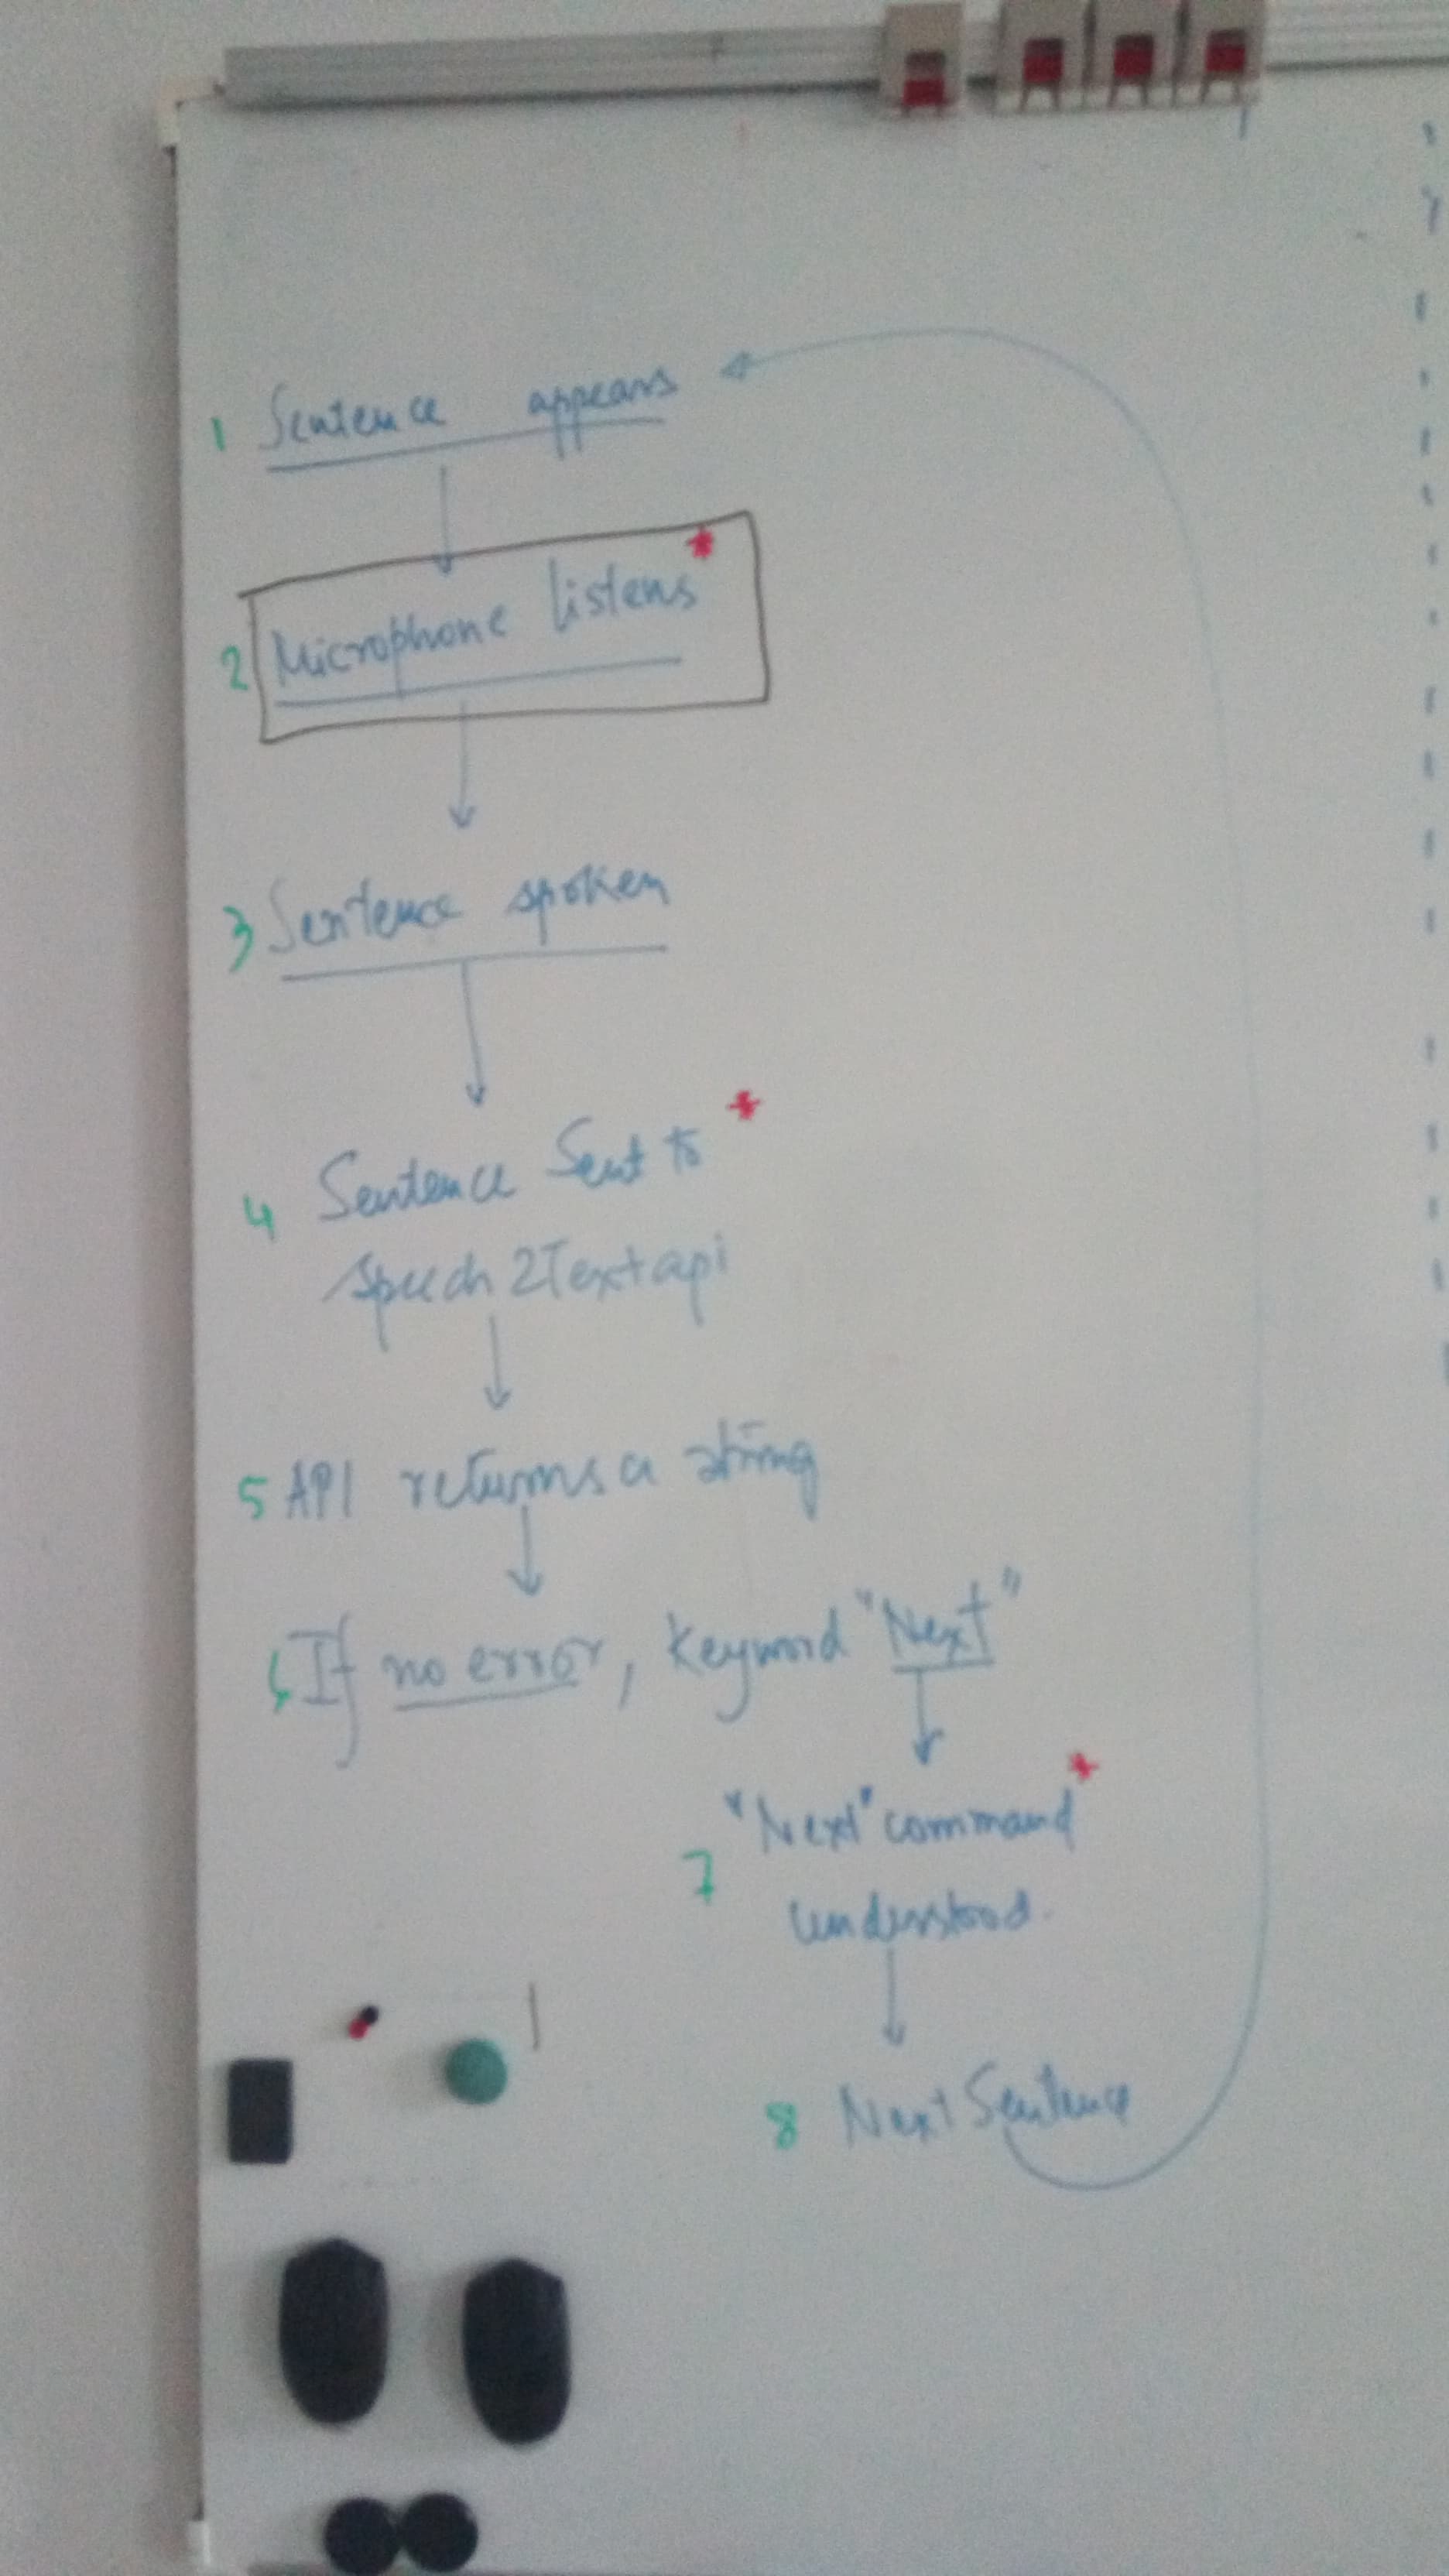 1 Sentence appears
2 Microphone listens *
3 Sentence spoken
4 Sentence Sent to *
Speech 2Text api
5 API returns a string
6 If no error, keyword "Next"
7 "Next" command *
understood.
8 Next Sentence